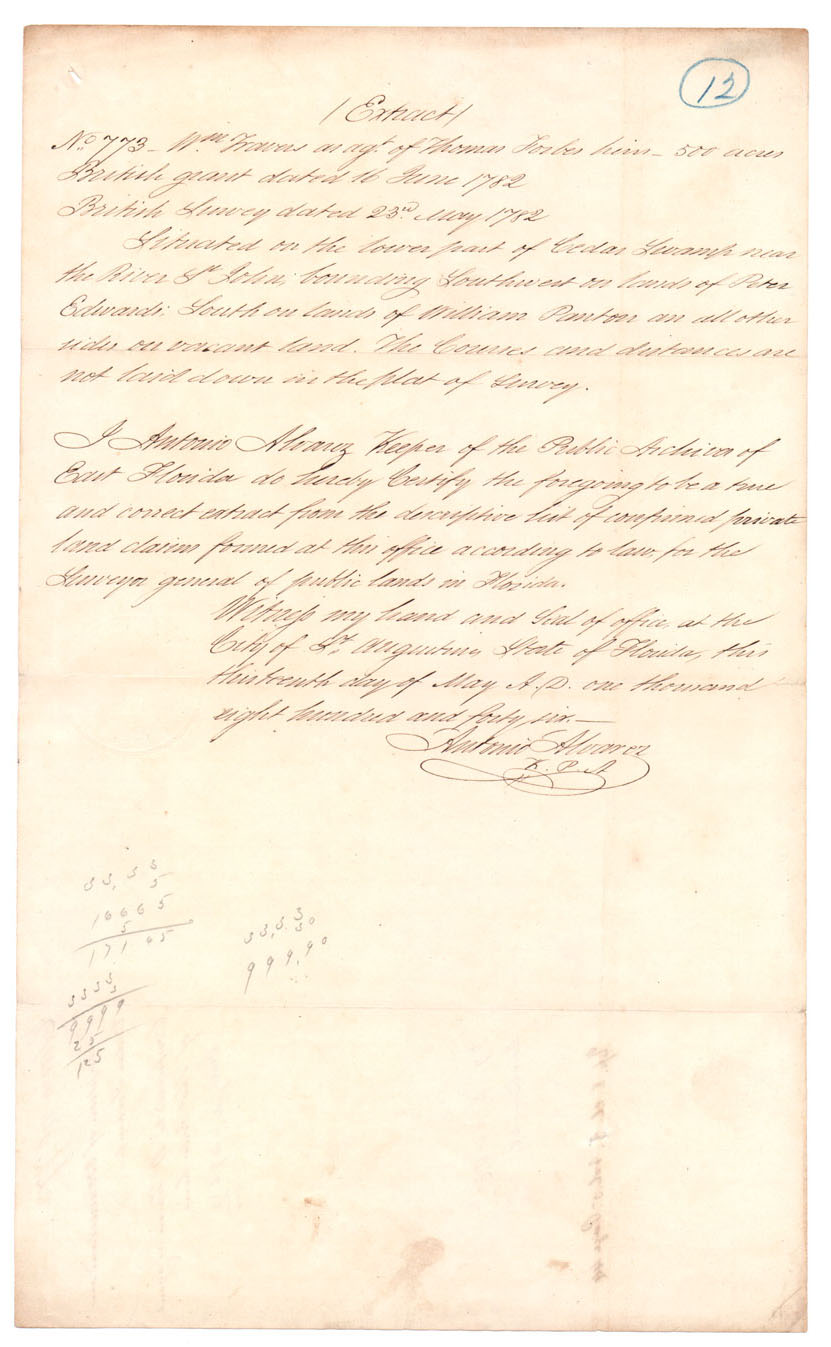 12
/Extract/
No. 773 - Wm. Travers as agt. of Thomas Forbes heirs - 500 acres
British grant dated 16 June 1782
British Survey dated 23rd May 1782
Situated on the lower part of Cedar Swamp near
the River St. John, bounding Southwest on lands of Peter
Edwards: South on lands of William Panton an all other
sides on vacant land. The Courses and distances are
not laid down in the plat of Survey.
I Antonio Alvarez Keeper of the Public Archives of
East Florida do hereby Certify the foregoing to be a true
and correct extract from the descriptive list of confirmed private
land claims formed at this office according to law, for the
Surveyor general of public lands in Florida.
Witness my hand and Seal of office, at the
City of St. Augustine, State of Florida, this
thirteenth day of May A.D. one thousand
eight hundred and forty six.—
Antonio Alvarez
K. P. A
33,33
5
16665
5
17165
3333
3
9999
25
125
33,33
30
999,90